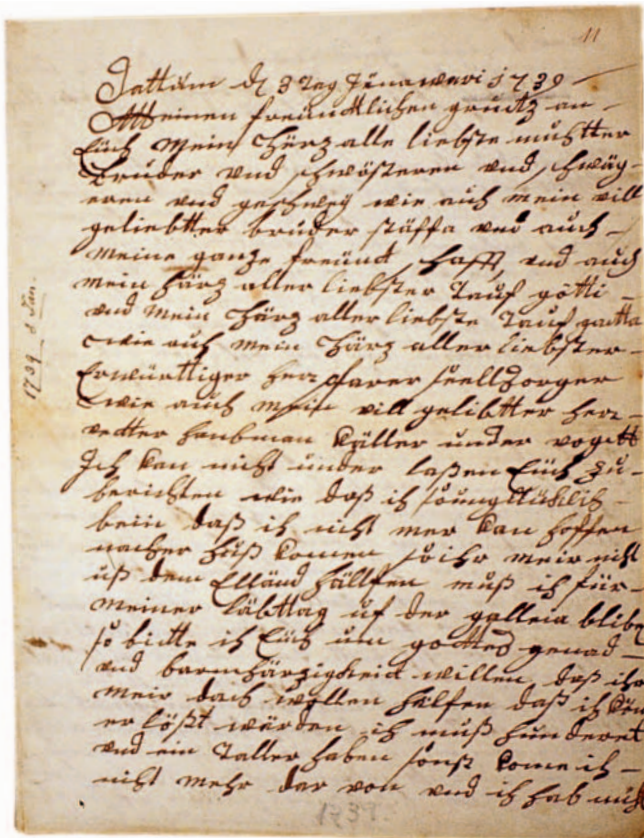 11
Dattum d 3 Tag Jenaweri 1739
Meinen freündtlichen gruotz an
Eüch Mein Härz alle liebste muotter
Bruder und schwösteren und schwäg-
eren und geschwey wie auch mein vill
geliebtter bruder stäffa und auch
meine ganze freündtschafft, und auch
mein härz aller liebster Tauf götti
und mein Härz aller liebste Tauf gotta
wie auch mein Härz aller liebster
Erwürttiger herr pfarer seellsorger
wie auch mein vill geliebtter herr
vetter haubman Käller under vogtt
Ich kan nicht under laßen Eüch zu-
berichten wie daß ich so unglücklich
bein daß ich nicht mer kan hoffen
nacher huß komen so ihr meir nicht
uß dem Elländ hällffen muß ich für
meiner läbttag uf der galleia blibe
so bitte ich Eüch um gottes genad
und barmhärzigkeit willen, daß ihr
meir doch wollen hälfen daß ich kön
er lößt würden ich muß hunderet
und ein Taller haben sonst kome ich
nicht mehr dar von und ich hab nicht
1739 3 Jan.
1739.